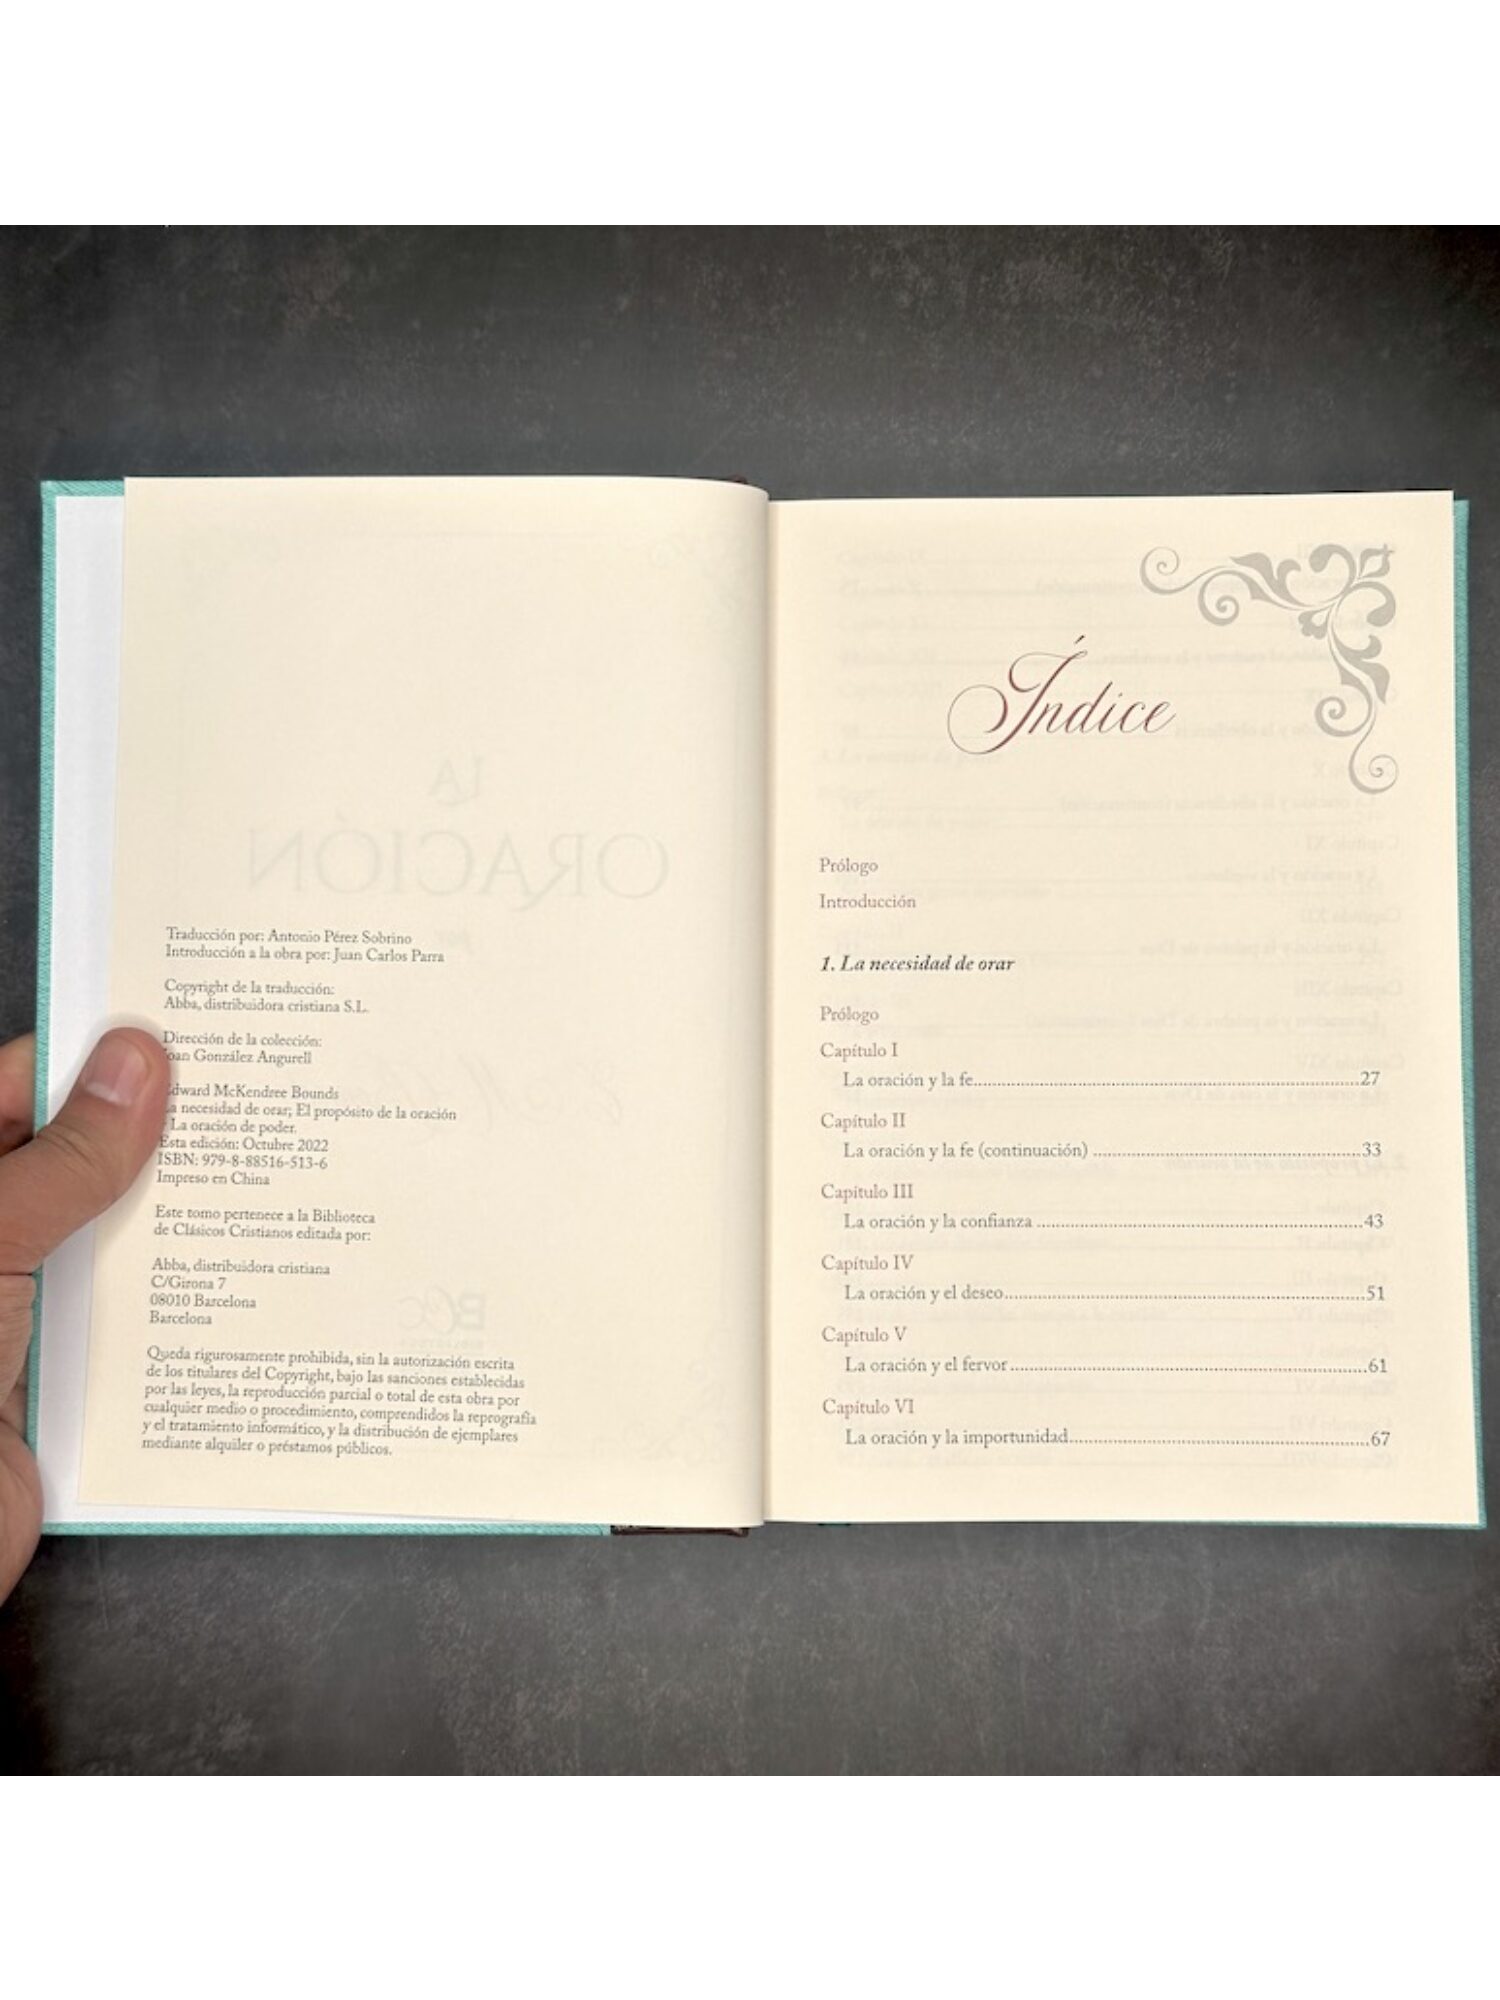 Traducción por: Antonio Pérez Sobrino
Introducción a la obra por: Juan Carlos Parra
Copyright de la traducción:
Abba, distribuidora cristiana S.L.
Dirección de la colección:
Joan González Angurell
Edward McKendree Bounds
La necesidad de orar; El propósito de la oración
La oración de poder.
Esta edición: Octubre 2022
ISBN: 979-8-88516-513-6
Impreso en China
Este tomo pertenece a la Biblioteca
de Clásicos Cristianos editada por:
Abba, distribuidora cristiana
C/Girona 7
08010 Barcelona
Barcelona
Queda rigurosamente prohibida, sin la autorización escrita
de los titulares del Copyright, bajo las sanciones establecidas
por las leyes, la reproducción parcial o total de esta obra por
cualquier medio o procedimiento, comprendidos la reprografía
y el tratamiento informático, y la distribución de ejemplares
mediante alquiler o préstamos públicos.
Índice
Prólogo
Introducción
1. La necesidad de orar
Prólogo
Capítulo I
La oración y la fe....27
Capítulo II
La oración y la fe (continuación) ....33
Capítulo III
La oración y la confianza ....43
Capítulo IV
La oración y el deseo....51
Capítulo V
La oración y el fervor....61
Capítulo VI
La oración y la importunidad....67